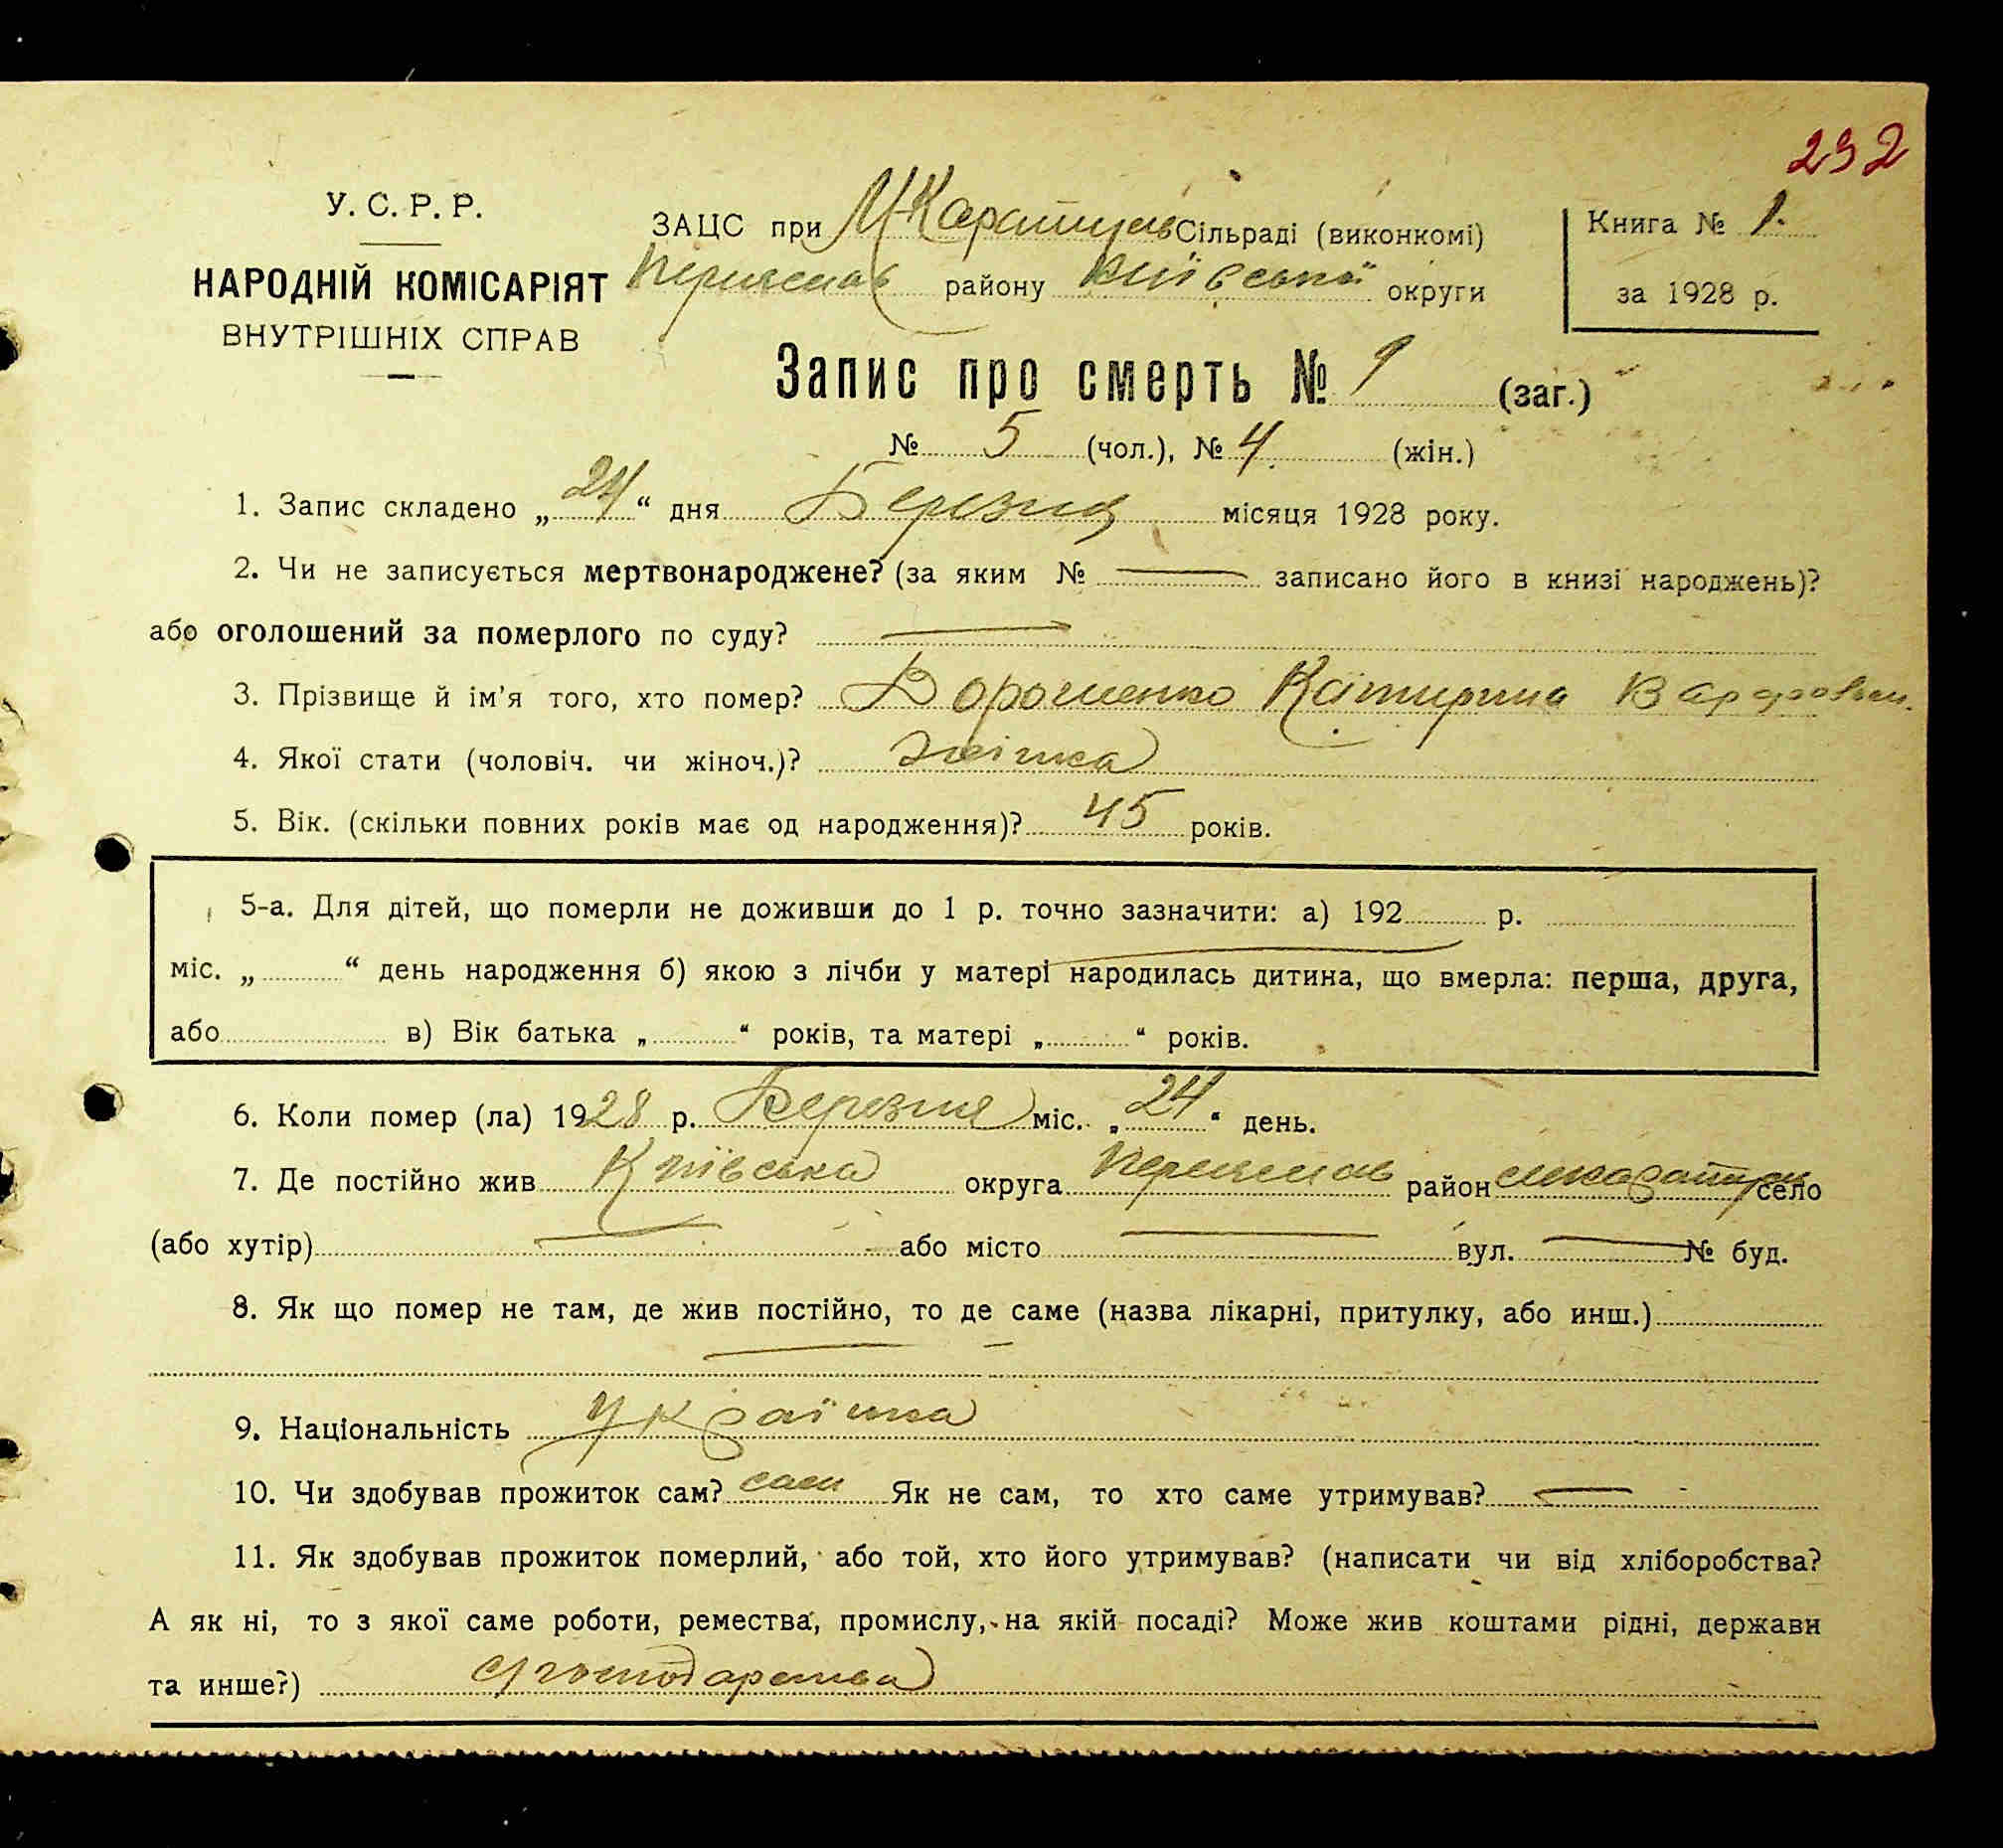 232
У. С. Р. Р.
НАРОДНІЙ КОМІСАРІЯТ
ВНУТРІШНІХ СПРАВ
ЗАЦС при М-Каратульс Сільраді (виконкомі)
Переяслав району Київської округи
Книга № 1.
за 1928 р.
Запис про смерть № 9 (заг.)
№ 5 (чол.), № 4. (жін.)
1. Запис складено „24“ дня Березня місяця 1928 року.
2. Чи не записується мертвонароджене? (за яким № — записано його в книзі народжень)?
або оголошений за померлого по суду? —
3. Прізвище й ім'я того, хто помер? Дорошенко Катирина
4. Якої стати (чоловіч. чи жіноч.)? жінка
5. Вік. (скільки повних років має од народження)? 45 років.
5-а. Для дітей, що померли не доживши до 1 р. точно зазначити: а) 192 р.
міс. „ “ день народження б) якою з лічби у матері народилась дитина, що вмерла: перша, друга,
або в) Вік батька „ “ років, та матері „ “ років.
6. Коли помер (ла) 1928 р. Березня міс. „24“ день.
7. Де постійно жив Київська округа Переяслав район село
(або хутір) — або місто — вул. — № буд.
8. Як що помер не там, де жив постійно, то де саме (назва лікарні, притулку, або инш.)
—
9. Національність Українка
10. Чи здобував прожиток сам? сам Як не сам, то хто саме утримував? —
11. Як здобував прожиток померлий, або той, хто його утримував? (написати чи від хліборобства?
А як ні, то з якої саме роботи, ремества, промислу, на якій посаді? Може жив коштами рідні, держави
та инше?) господарства